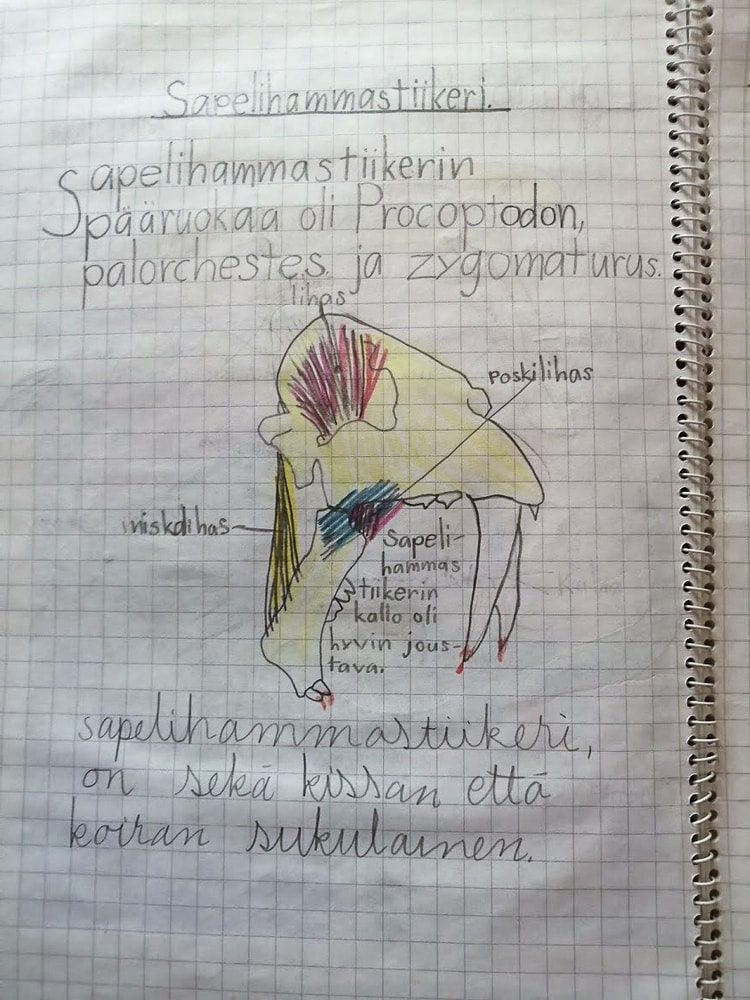 Sapelihammastiikeri.
Sapelihammastiikerin
pääruokaa oli Procoptodon,
palorchestes. ja zygomaturus.
lihas
poskilihas
Sapeli-
hammas
tiikerin
kallo oli
hyvin jous-
tava.
sapelihammastiikeri,
on sekä kissan että
koiran sukulainen.